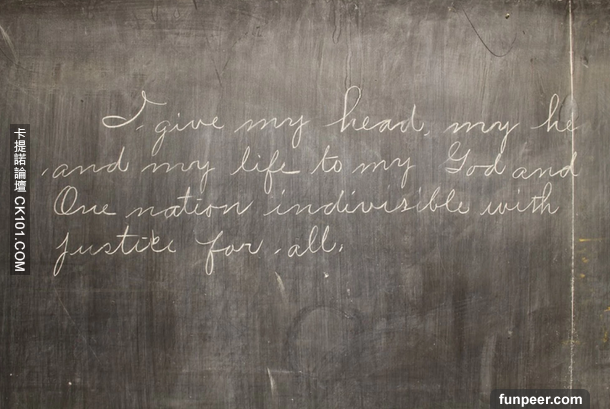 I give my head, my he
and my life to my God and
One nation indivisible with
justice for all.
卡提諾論壇 CK101.COM
funpeer.com